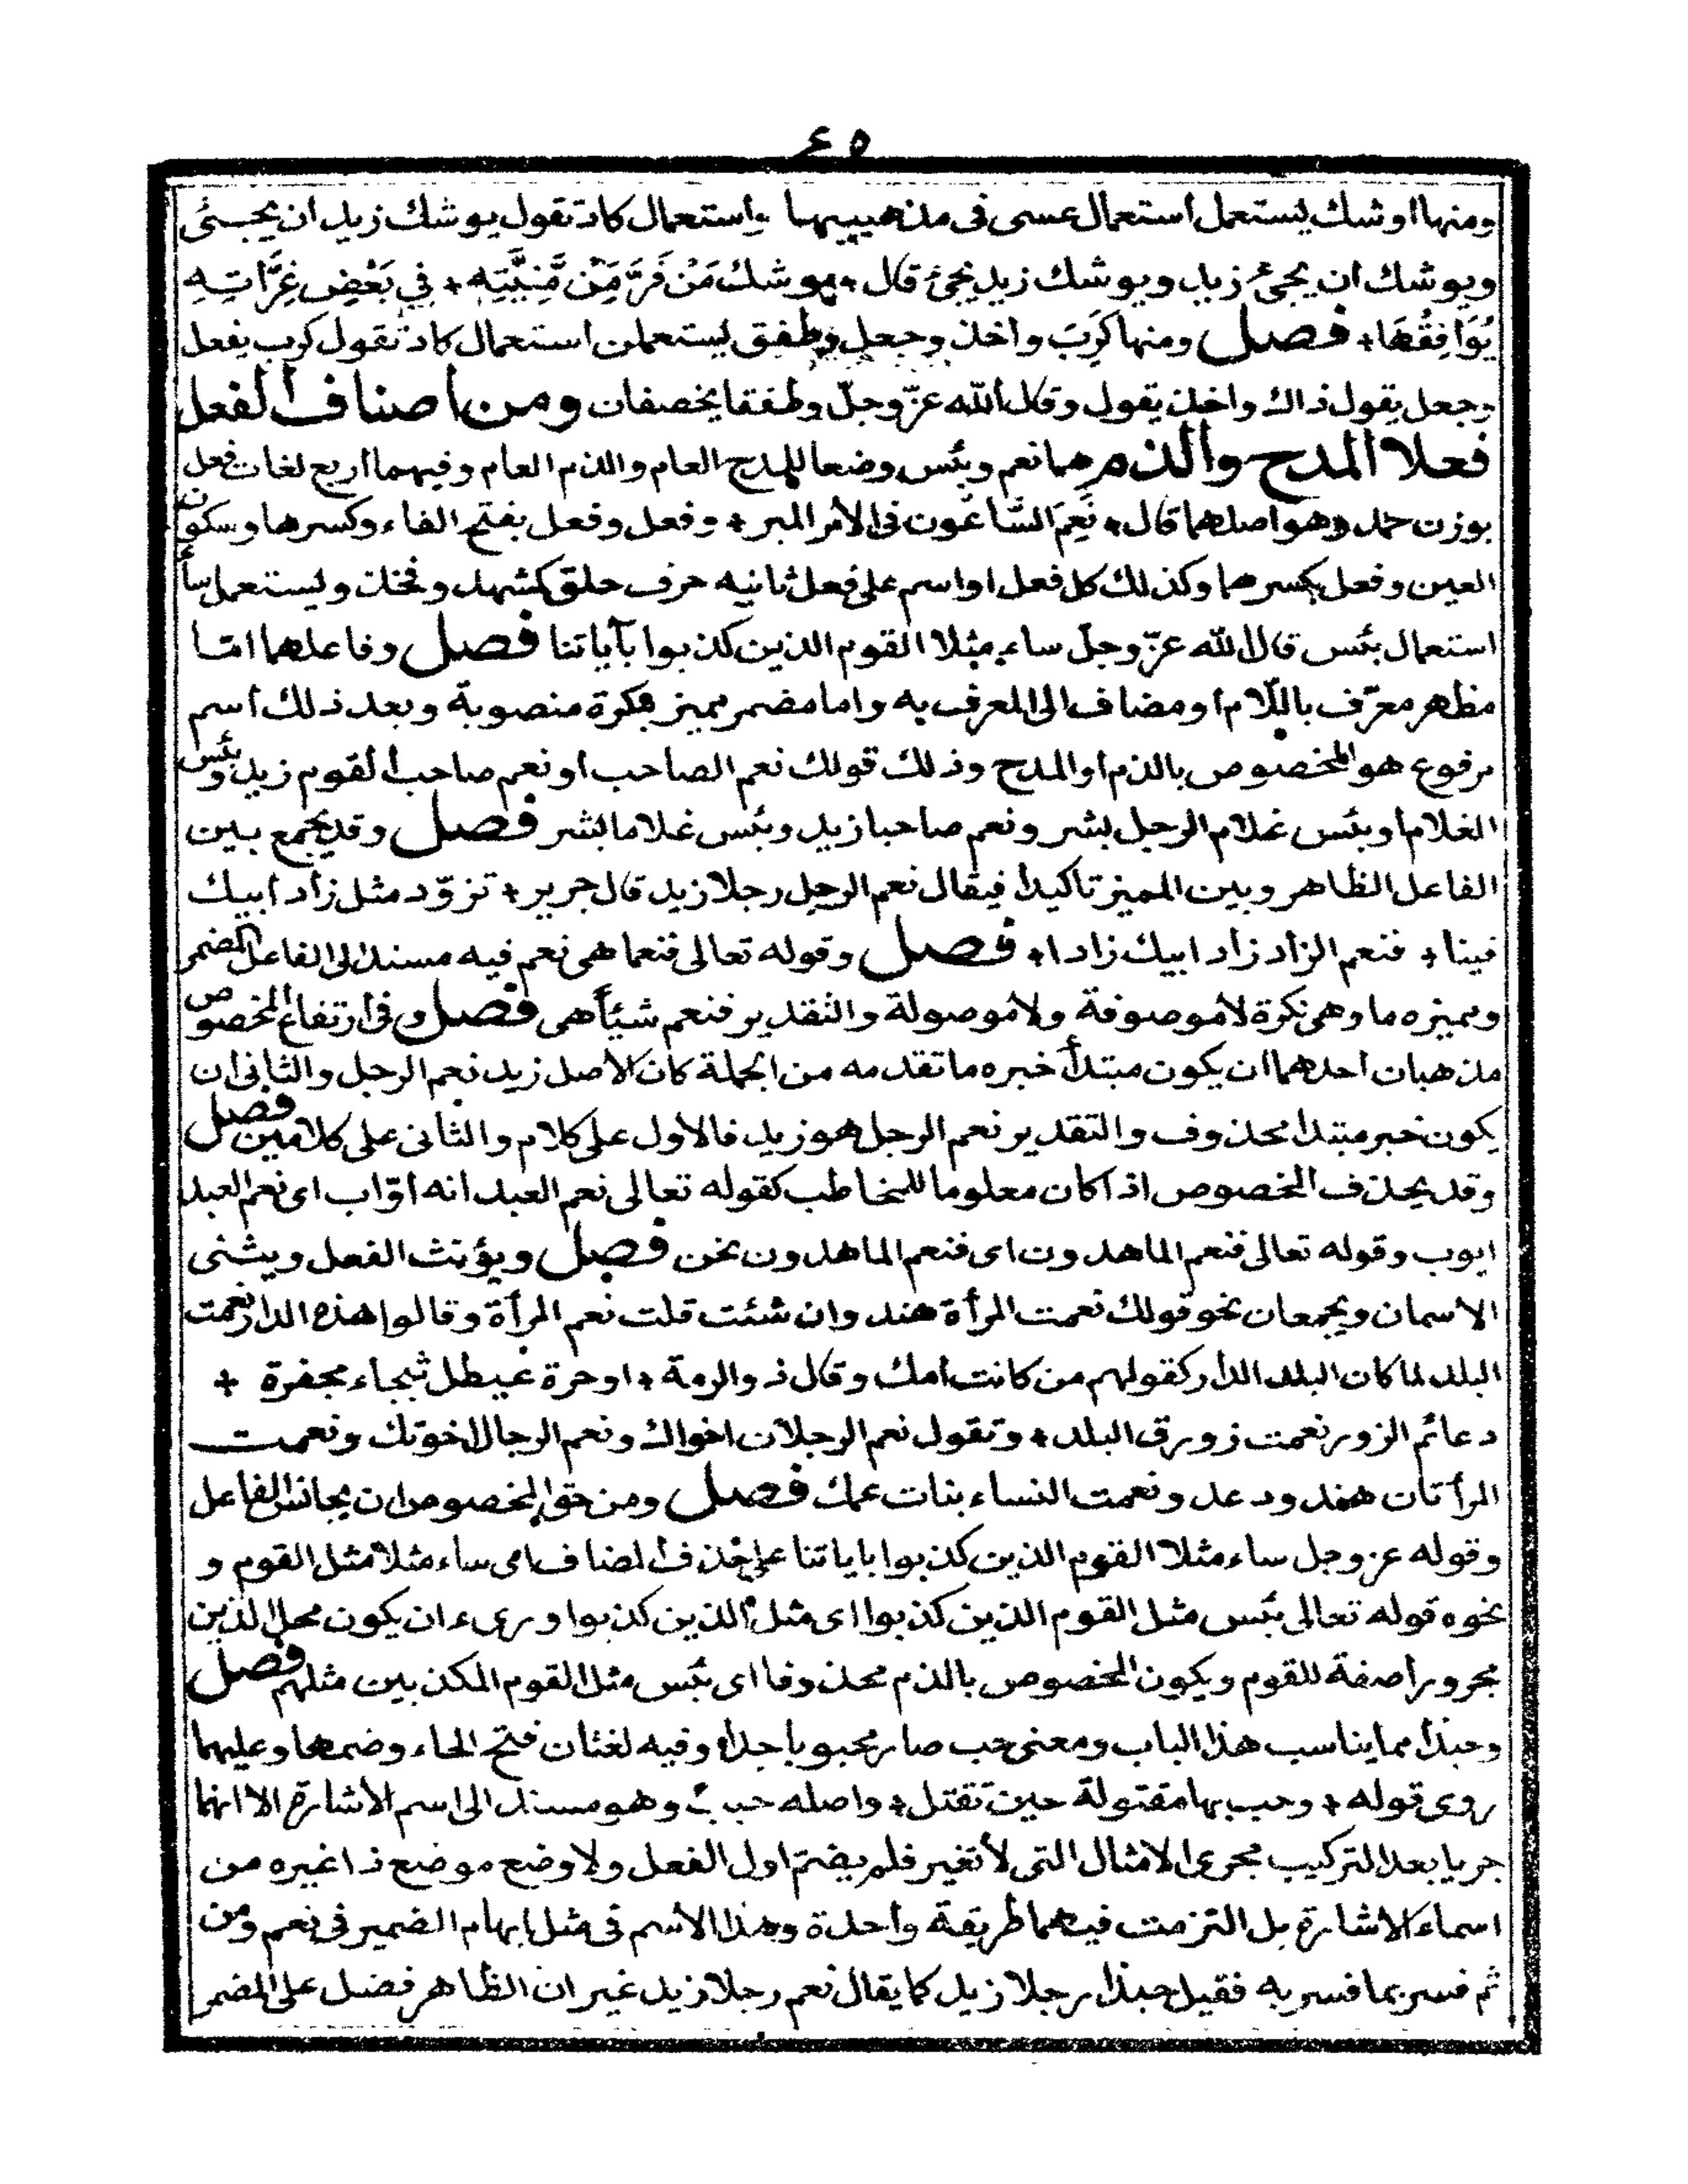 ٤٥
ومنها اوشك يستعمل استعمال عسى فى مذهبيها واستعمال كاد تقول يوشك زيد ان يجىئ
ويوشك ان يجئ زيد ويوشك زيد يجئ قال + يوشك مَنْ فَرَّ مِّنْ مَّنِيَّتِهِ + فِي بَعْضِ غِرَّاتِهِ
يُوَافِقُهَا + فصل ومنها كَرَبَ واخذ وجعل وطفق يستعملن استعمال كاد تقول كرب يفعل
وجعل يقول ذاك واخذ يقول وقال الله عزّ وجلّ وطفقا يخصفان ومن اصناف الفعل
فعلا المدح والذم هما نعم وبئس وضعا للمدح العام والذم العام وفيهما اربع لغات فعل
بوزن حمد وهو اصلهما قال + نَعِمَ السَّاعُون فى الأمر المبر + وفعل وفعل بفتح الفاء وكسرها وسكون
العين وفعل بكسرهما وكذلك كل فعل او اسم على فعل ثانيه حرف حلق كشهد وفخذ ويستعمل سأ
استعمال بئس قال الله عزّ وجلّ ساء مثلا القوم الذين كذبوا بآياتنا فصل وفاعلهما امّا
مظهر معرّف باللّام او مضاف الى المعرف به واما مضمر مميز بنكرة منصوبة وبعد ذلك اسم
مرفوع هو المخصوص بالذم او المدح وذلك قولك نعم الصاحب او نعم صاحب القوم زيد وبئس
الغلام او بئس غلام الرجل بشر ونعم صاحبا زيد وبئس غلاما بشر فصل وقد يجمع بين
الفاعل الظاهر وبين المميز تاكيدا فيقال نعم الرجل رجلا زيد قال جرير + تزوّد مثل زاد ابيك
فينا + فنعم الزاد زاد ابيك زادا + فصل وقوله تعالى فنعما هى نعم فيه مسند الى الفاعل المضمر
ومميزه ما وهى نكرة لا موصوفة ولا موصولة والتقدير فنعم شيئا هى فصل وفى ارتفاع المخصوص
مذهبان احدهما ان يكون مبتدأ خبره ما تقدمه من الجملة كان الأصل زيد نعم الرجل والثانى ان
يكون خبر مبتدا محذوف والتقدير نعم الرجل هو زيد فالاول على كلام والثانى على كلامين فصل
وقد يحذف المخصوص اذا كان معلوما للمخاطب كقوله تعالى نعم العبد انه اوّاب اى نعم العبد
ايوب وقوله تعالى فنعم الماهدون اى فنعم الماهدون نحن فصل ويؤنث الفعل ويثنى
الاسمان ويجمعان نحو قولك نعمت المرأة هند وان شئت قلت نعم المرأة وقالوا هذه الدار نعمت
البلد لما كان البلد الدار كقولهم من كانت امك وقال ذو الرمة + او حرة عيطل ثبجاء مجفرة +
دعائم الزور نعمت زورق البلد + وتقول نعم الرجلان اخواك ونعم الرجال اخوتك ونعمت
المرأتان هند ودعد ونعمت النساء بنات عمك فصل ومن حق المخصوص ان يجانس الفاعل
وقوله عز وجل ساء مثلا القوم الذين كذبوا باياتنا على حذف المضاف اى ساء مثلا مثل القوم و
نحوه قوله تعالى بئس مثل القوم الذين كذبوا اى مثل الذين كذبوا ورىء ان يكون محل الذين
مجرورا صفة للقوم ويكون المخصوص بالذم محذوفا اى بئس مثل القوم المكذبين مثلهم فصل
وحبذا مما يناسب هذا الباب ومعنى حب صار محبوبا جدا وفيه لغتان فتح الحاء وضمها وعليهما
روى قوله + وحب بها مقتولة حين تقتل + واصله حبب وهو مسند الى اسم الأشارة الا انهما
جريا بعد التركيب مجرى الامثال التى لا تغير فلم يضمّ اول الفعل ولا وضع موضع ذا غيره من
اسماء الاشارة بل التزمت فيهما طريقة واحدة وهذا الاسم فى مثل ابهام الضمير فى نعم ومن
ثم فسر بما فسر به فقيل حبذا رجلا زيد كما يقال نعم رجلا زيد غير ان الظاهر فضل على المضمر